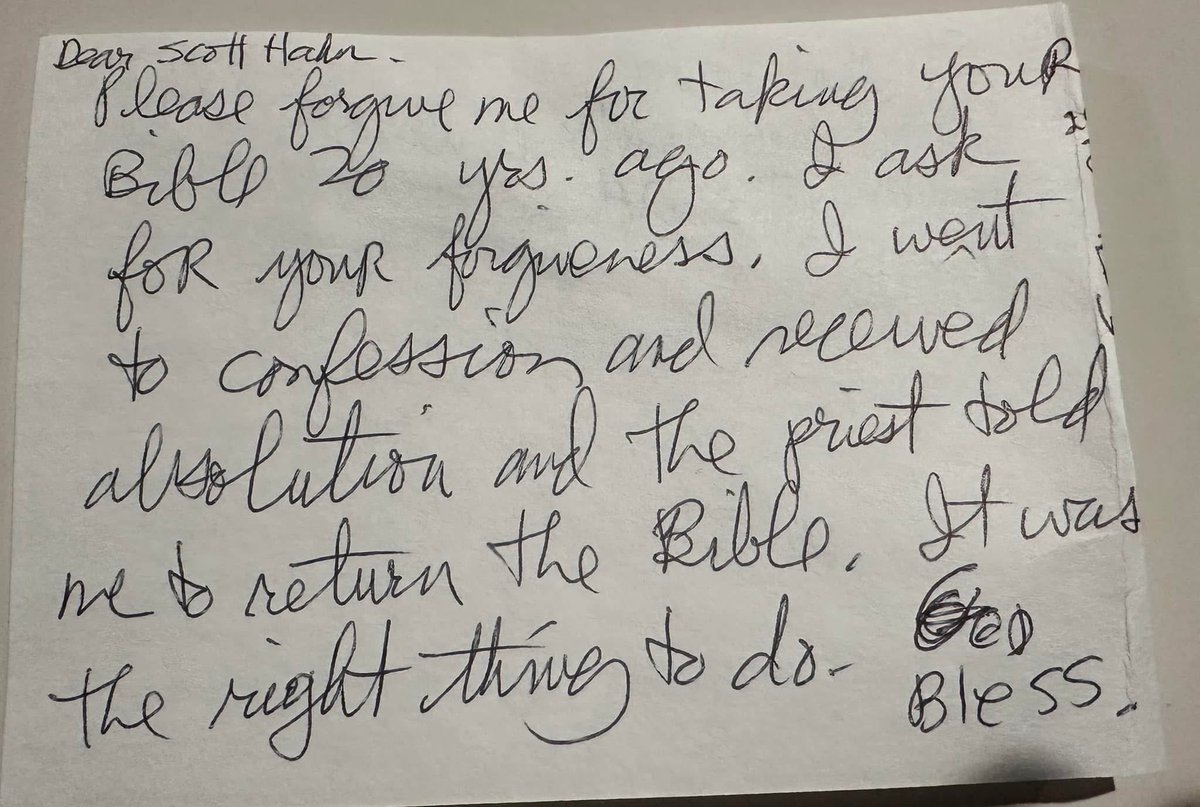 Dear Scott Hahn.
Please forgive me for taking your
Bible 20 yrs. ago. I ask
for your forgiveness. I went
to confession and received
absolution and the priest told
me to return the Bible. It was
the right thing to do. God
Bless.